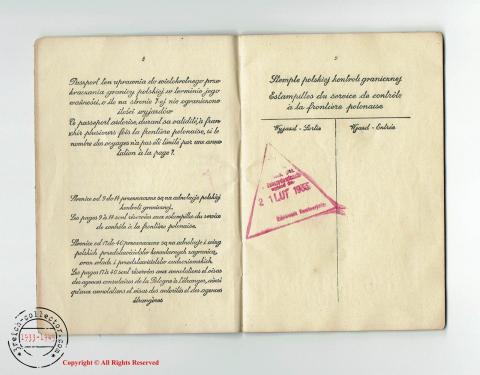 8
Paszport ten uprawnia do wielokrotnego prze-
kraczania granicy polskiej w terminie jego
ważności, o ile na stronie 7-ej nie ograniczono
ilości wyjazdów
Ce passeport autorise, durant sa validité, à fran-
chir plusieurs fois la frontière polonaise, si le
nombre des voyages n'a pas été limité par une anno-
tation à la page 7.
Stronice od 9 do 16 przeznaczone są na adnotacje polskiej
kontroli granicznej.
Les pages 9 à 16 sont réservées aux estampilles du service
de contrôle à la frontière polonaise.
Stronice od 17 do 40 przeznaczone są na adnotacje i wizy
polskich przedstawicielstw konsularnych zagranicą,
oraz władz i przedstawicielstw cudzoziemskich.
Les pages 17 à 40 sont réservées aux annotations et visas
des agences consulaires de la Pologne à l'étranger, ainsi
qu'aux annotations et visas des autorités et des agences
étrangères
9
Stemple polskiej kontroli granicznej
Estampilles du service de contrôle
à la frontière polonaise
Wyjazd - Sortie
Wjazd - Entrée
21 LUT 1933
3reich-collector.com
1933-1945
Copyright © All Rights Reserved